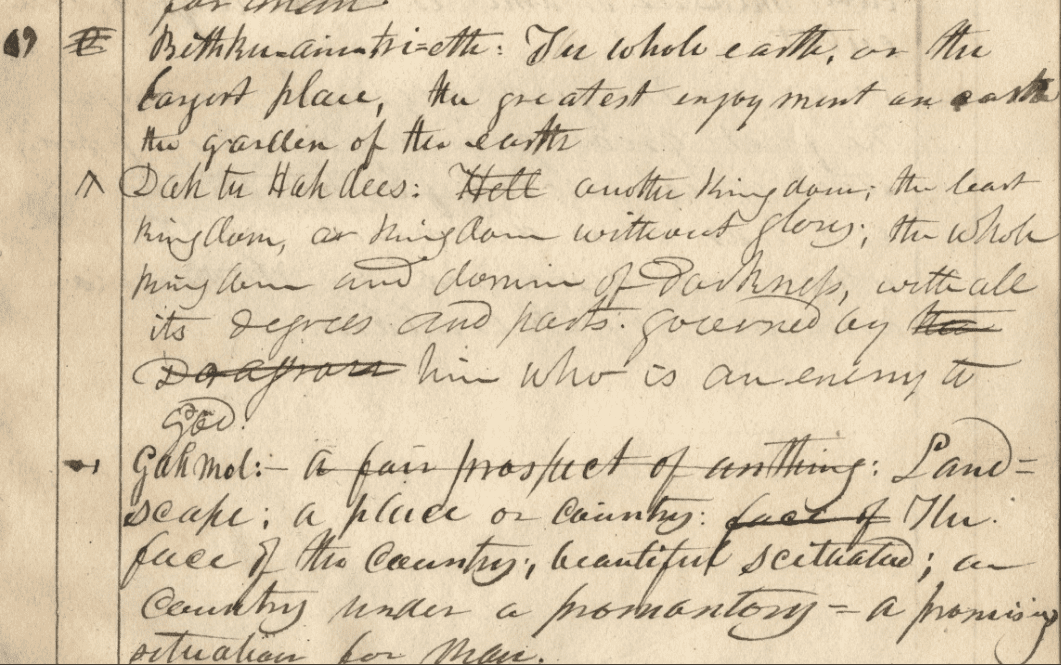 for man
Bethku-aintri-ethe: The whole earth, or the
largest place, the greatest enjoyment on earth
the garden of the earth
Dah tu Hah dees: Hell another kingdom; the least
kingdom, or kingdom without glory; the whole
kingdom and domin of Darkness, with all
its degrees and parts: governed by the
him who is an enemy to
God.
Gahmol:- a fair prospect of anything: Land=
scape: a place or country: face of The.
face of the Country, beautiful scituated; an
Country under a promontory = a promising
situation for man.